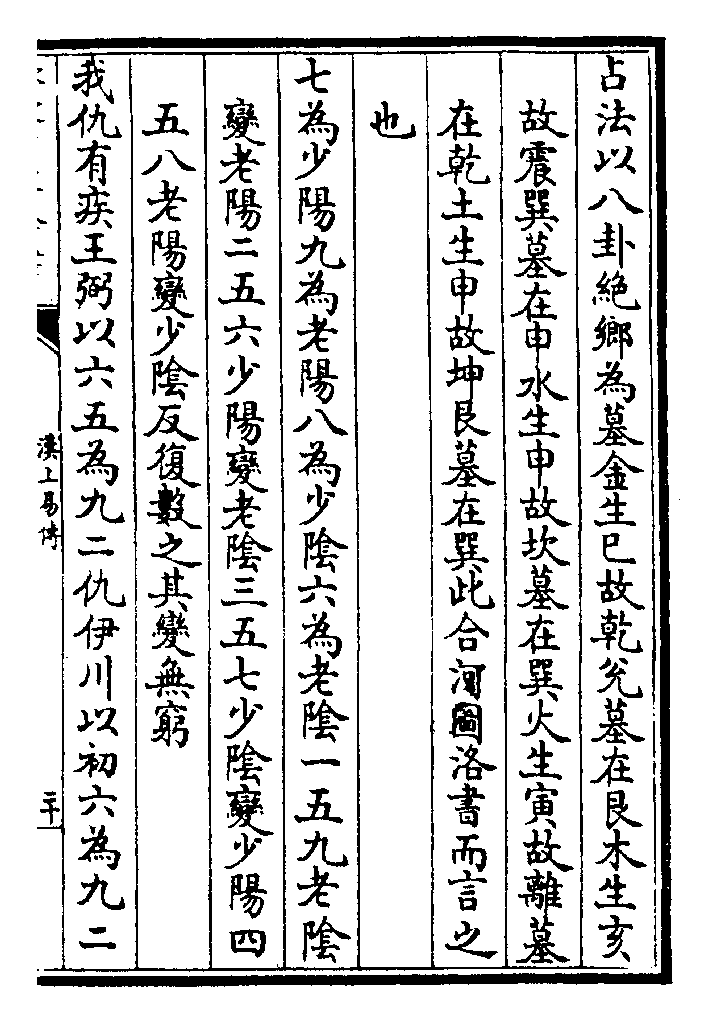 占法以八卦絶鄉為墓金生巳故乾兊墓在艮木生亥
故震巽墓在申水生申故坎墓在巽火生寅故離墓
在乾土生申故坤艮墓在巽此合河圖洛書而言之
也
七為少陽九為老陽八為少陰六為老陰一五九老陰
變老陽二五六少陽變老陰三五七少陰變少陽四
五八老陽變少陰反復數之其變無窮
我仇有疾王弼以六五為九二仇伊川以初六為九二
漢上易傳
二十